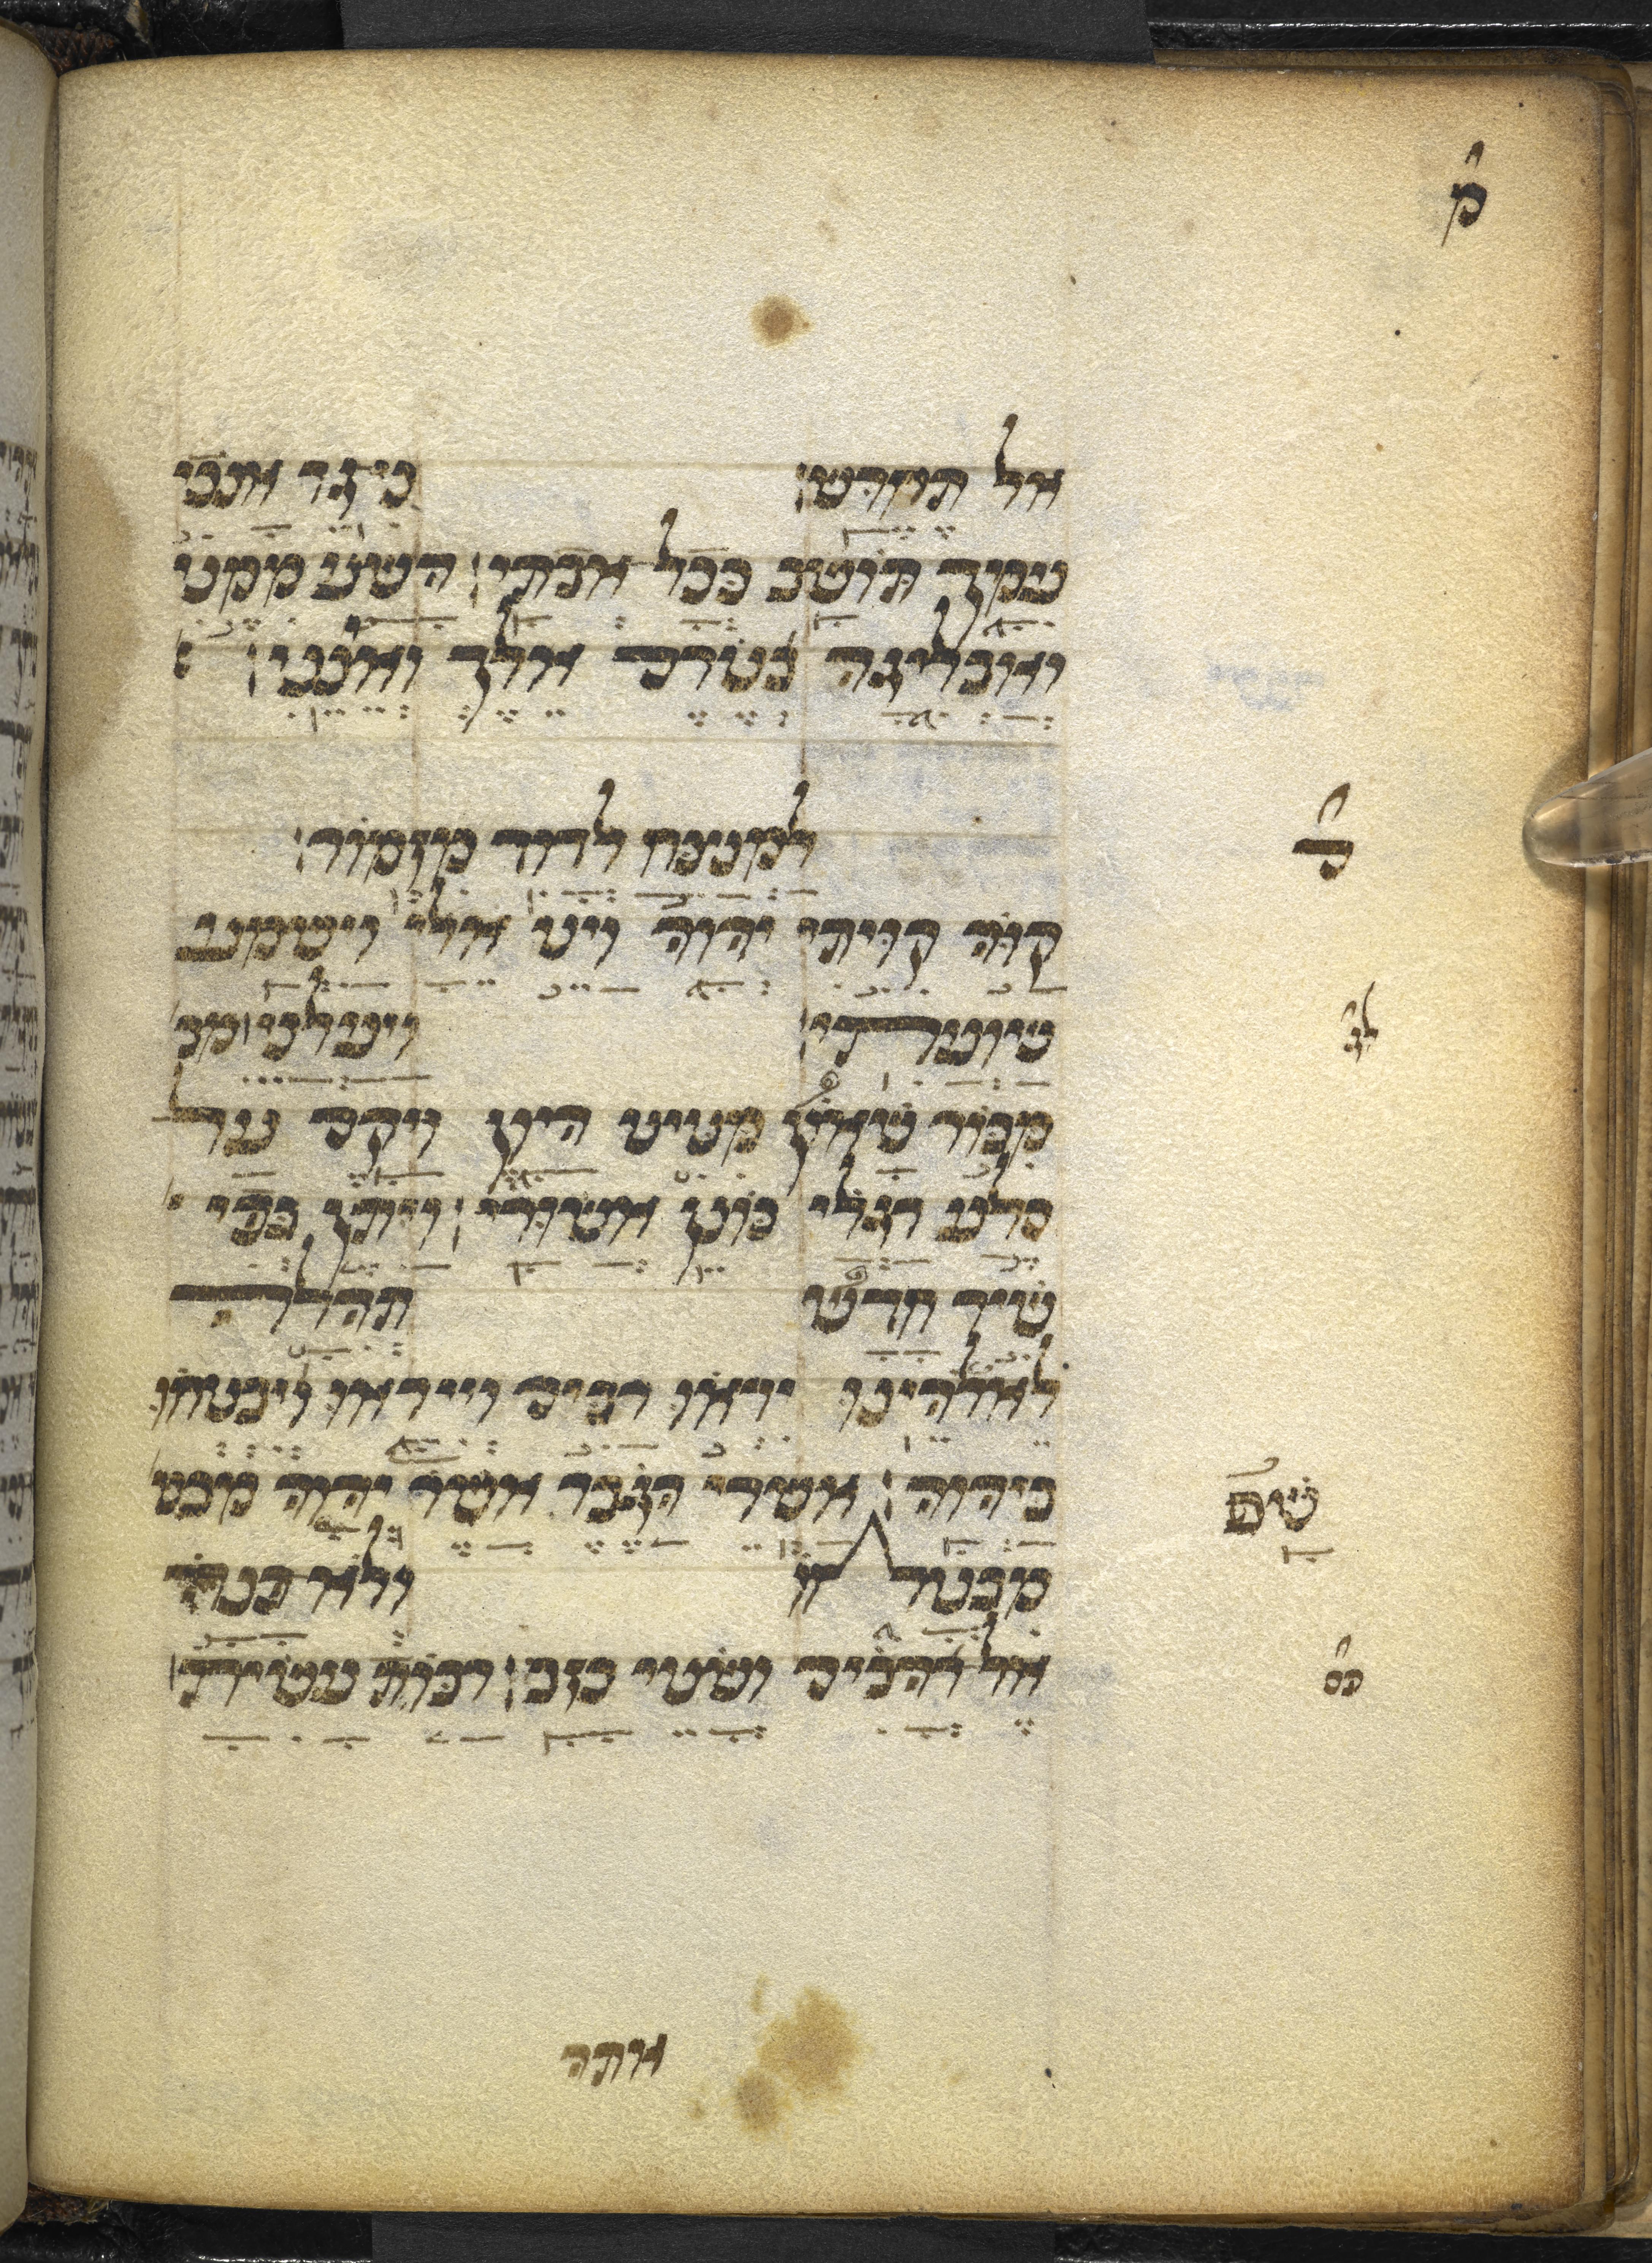 מ
אל תחרש כי גר אנכי
עמך תושב ככל אבתי השע ממני
ואבליגה בטרם אלך ואינני
ס
למנצח לדוד מזמור
קוה קויתי יהוה ויט אלי וישמע
שועתי ויעלני
מבור שאון מטיט היון ויקם על
סלע רגלי כונן אשרי ויתן בפי
שיר חדש תהלה
לאלהינו יראו רבים וייראו ויבטחו
ביהוה אשרי הגבר אשר יהוה מבט
שם
מבטחו ולא פנה
אל רהבים ושטי כזב רבות עשית
אתה